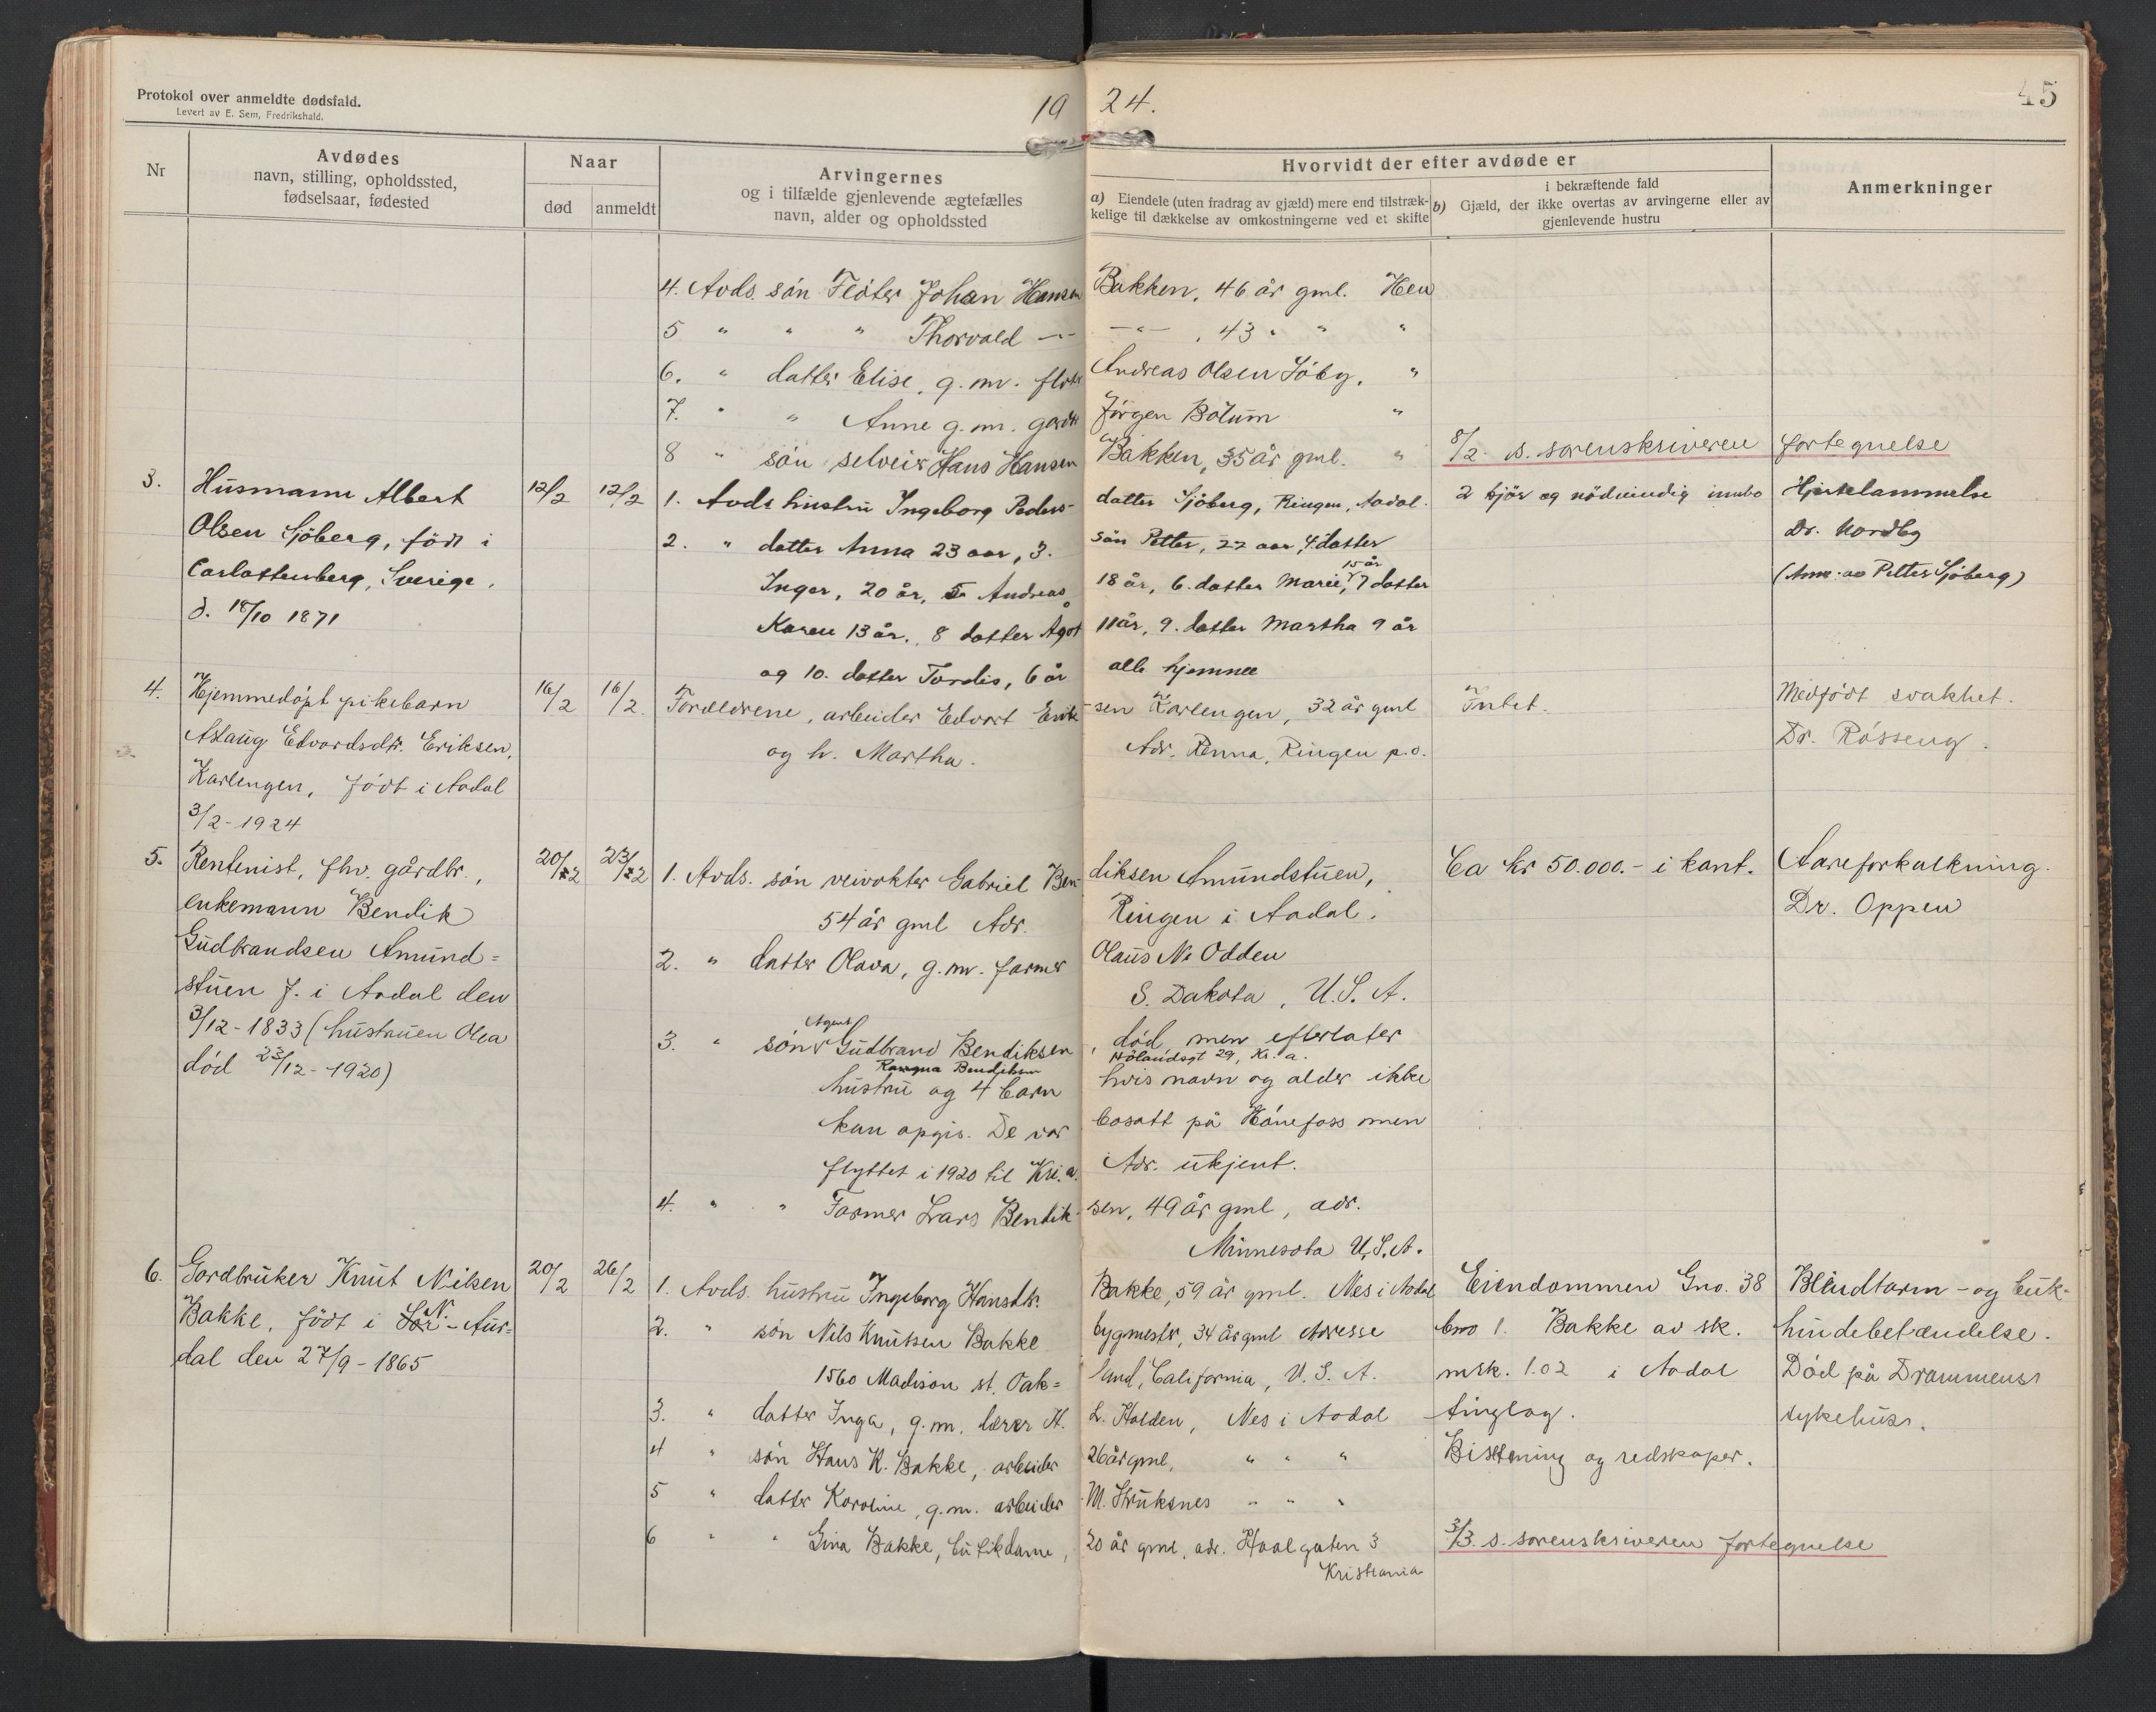 Protokol over anmeldte dødsfald.
Levert av E. Sem, Fredrikshald.
19 24.
45
Nr
Avdødes
navn, stilling, opholdssted,
fødselsaar, fødested
Naar
død
anmeldt
Arvingernes
og i tilfælde gjenlevende ægtefælles
navn, alder og opholdssted
Hvorvidt der efter avdøde er
a) Eiendele (uten fradrag av gjæld) mere end tilstræk-
kelige til dækkelse av omkostningerne ved et skifte
i bekræftende fald
b) Gjæld, der ikke overtas av arvingerne eller av
gjenlevende hustru
Anmerkninger
4. Avds. sön Flöter Johan Hansen Bakken, 46 år gml. Hen
5 " " " Thorvald -"- -"-, 43 " " "
6. " datter Elise, g. m. fløter Andreas Olsen Söby, "
7. " " Anne g. m. gardbr Jörgen Bölum "
8 " sön selveier Hans Hansen Bakken, 35 år gml. " 8/2 s. sorenskriveren fortegnelse
3. Husmann Albert
Olsen Sjöberg, födt i
Carlottenberg, Sverige.
d. 18/10 1871
12/2 12/2
1. Avds hustru Ingeborg Peders- datter Sjöberg, Ringen, Aadal.
2. " datter Anna 23 aar, 3. sön Petter, 22 aar, 4. datter
Inger, 20 år, 5 Andreas 18 år, 6. datter Marie, 15 år 7 datter
Karen 13 år., 8 datter Agot 11 år, 9. datter Martha 9 år
og 10. datter Tordis, 6 år alle hjemme
2 kjör og nödvendig innbo
Hjertelammelse
Dr. Nordby
(Anm. av Petter Sjöberg)
4. Hjemmedöpt pikebarn
Aslaug Edvardsdtr. Eriksen,
Karlengen, födt i Aadal
3/2-1924
16/2 16/2
Foreldrene, arbeider Edvart Erik- sen Karlengen, 32 år gml
og h. Martha. Adr. Renna, Ringen p.o.
Intet.
Medfödt svakhet.
Dr. Rösseng.
5. Rentenist, fhv. gårdbr.,
enkemann Bendik
Gudbrandsen Amund=
stuen f. i Aadal den
3/12-1833 (hustruen Olea
död 23/12-1920)
20/2 23/2
1. Avds. sön veivokter Gabriel Ben- diksen Amundstuen,
54 år gml Adr. Ringen i Aadal.
2. " datter Olava, g. m. farmer Olaus N. Odden
S. Dakota, U. S. A.
3. " sön Agent Gudbrand Bendiksen, död, men efterlater
Ragna Bendiksen Nölandsgt 29, Kr. a.
hustru og 4 barn hvis navn og alder ikke
kan opgis. De var bosatt på Hönefoss men
flyttet i 1920 til Kri.a. Adr. ukjent.
4. " " Farmer Lars Bendik- sen, 49 år gml, adr.
Minnesota U.S.A.
Ca kr 50.000.- i kont.
Aareforkalkning.
Dr. Oppen
6. Gardbruker Knut Nilsen
Bakke, födt i N.-Aur=
dal den 27/9-1865
20/2 26/2
1. Avds. hustru Ingeborg Hansdtr. Bakke, 59 år gml. Nes i Aadal
2. " sön Nils Knutsen Bakke bygmester, 34 år gml Adresse
1560 Madison st. Oak= land, California, U. S. A.
3. " datter Inga, g. m. lærer H. L. Halden, Nes i Aadal
4 " sön Hans K. Bakke, arbeider 26 år gml, " " "
5 " datter Karoline, g. m. arbeider M. Struksnes " " "
6 " " Gina Bakke, butikdame, 20 år gml, adr. Hoelgaten 3
Kristiania
Eiendommen Gno. 38
bno 1. Bakke av sk.
mrk. 1.02 i Aadal
tinglag.
Bisetning og redskaper.
3/3. s. sorenskriveren fortegnelse
Blindtarm- og buk-
hindebetændelse.
Död på Drammens
sykehus.